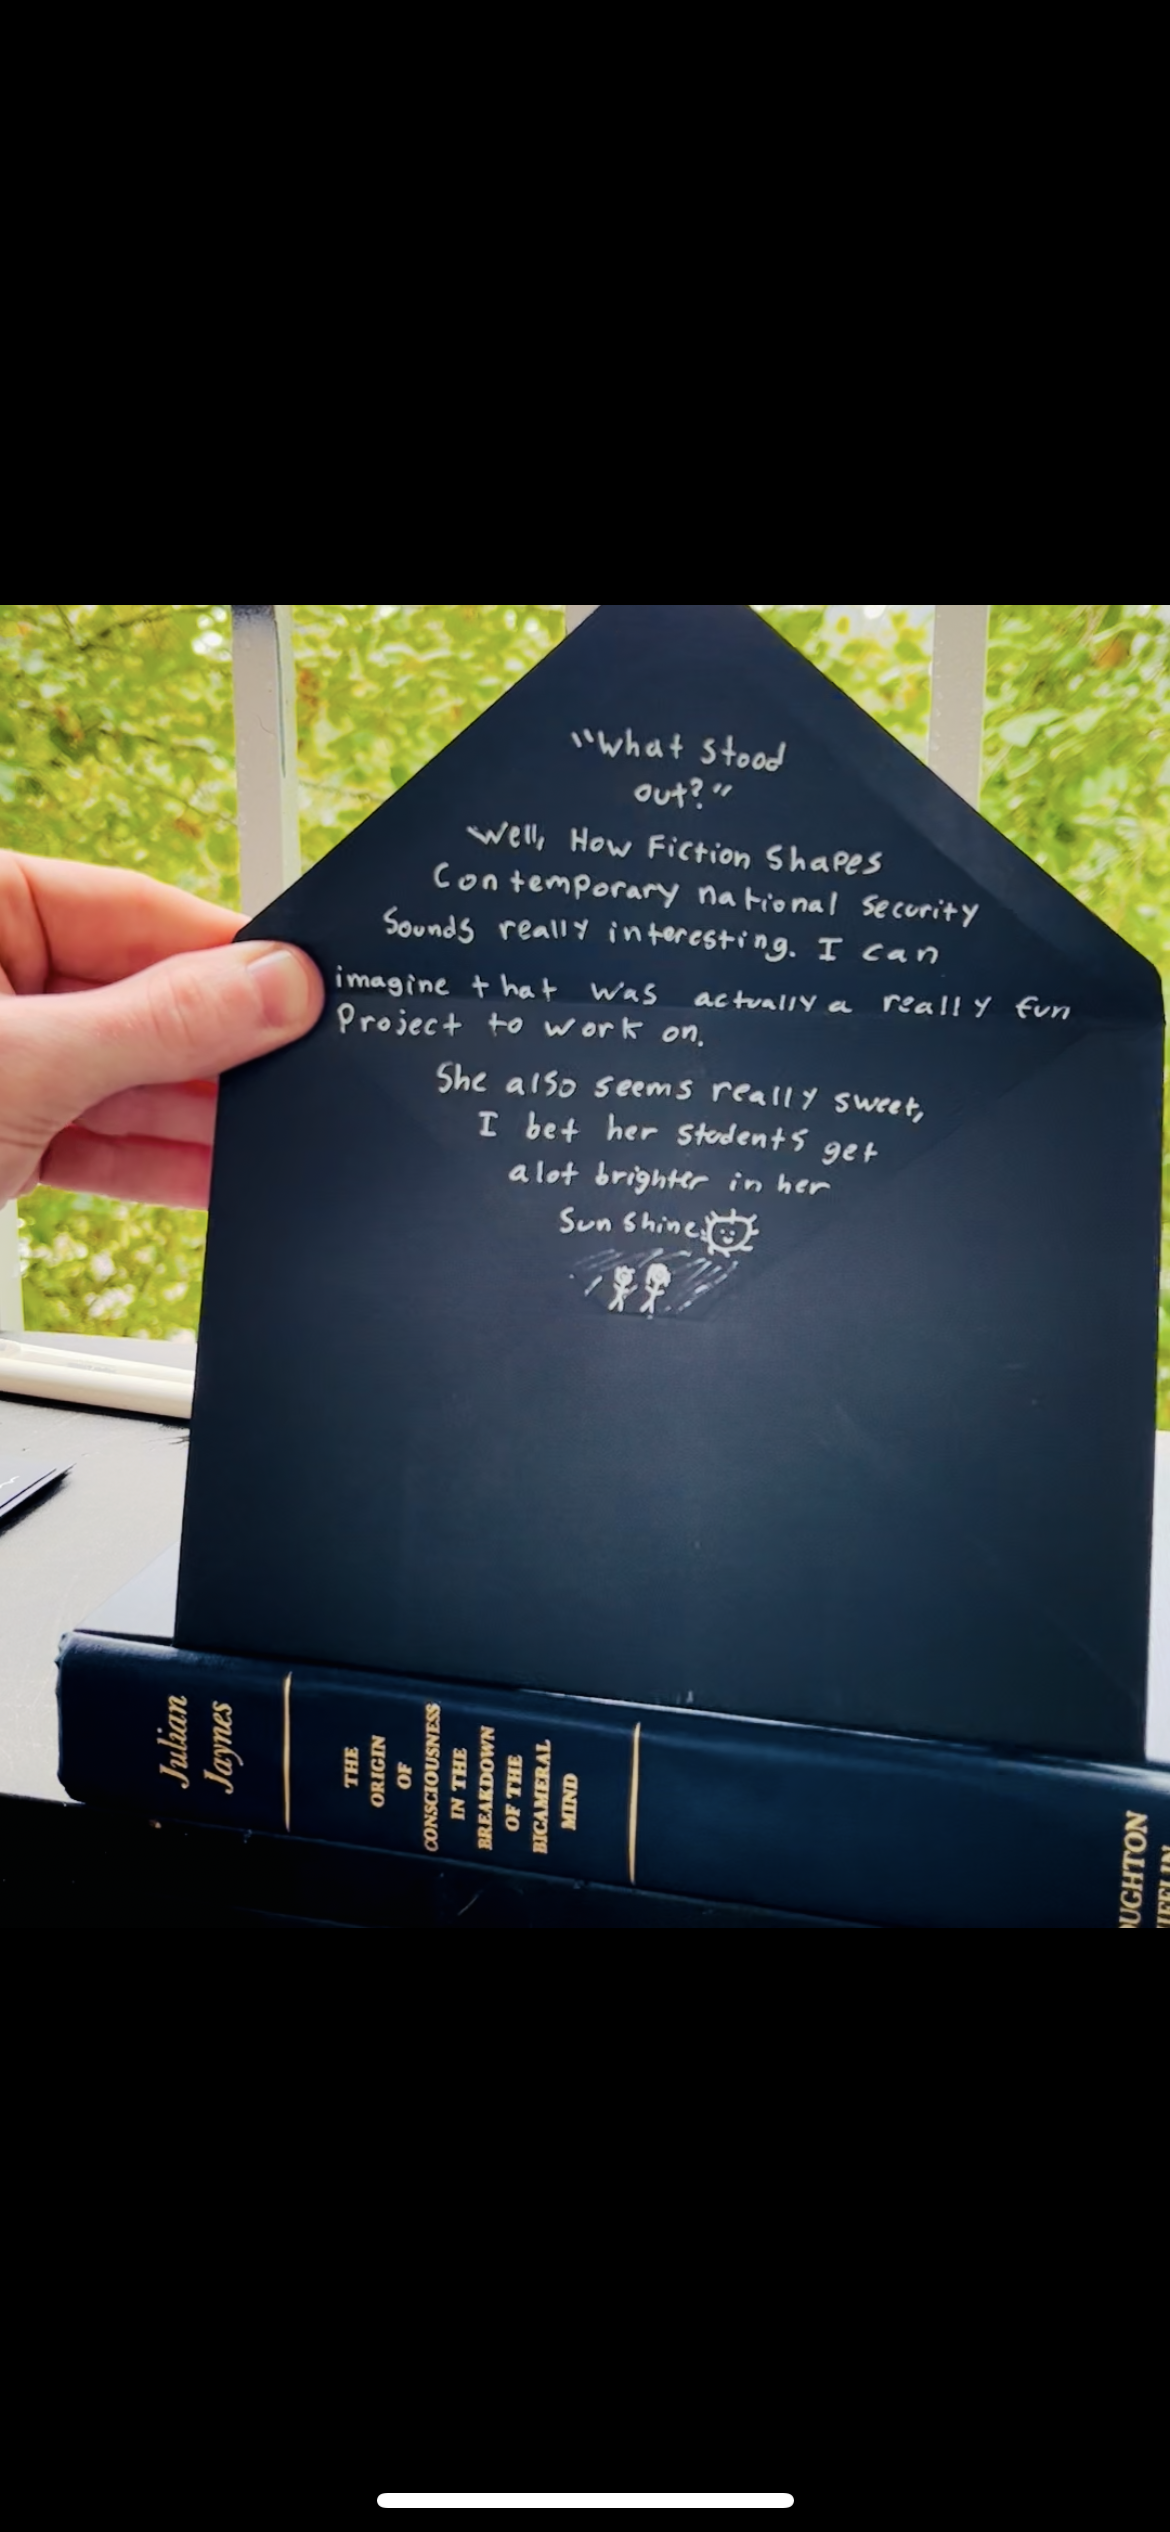 "What stood
out?"
Well, How Fiction Shapes
Contemporary national security
Sounds really interesting. I can
imagine that was actually a really fun
Project to work on.
She also seems really sweet,
I bet her students get
alot brighter in her
Sun shine
Julian
Jaynes
THE
ORIGIN
OF
CONSCIOUSNESS
IN THE
BREAKDOWN
OF THE
BICAMERAL
MIND
OUGHTON